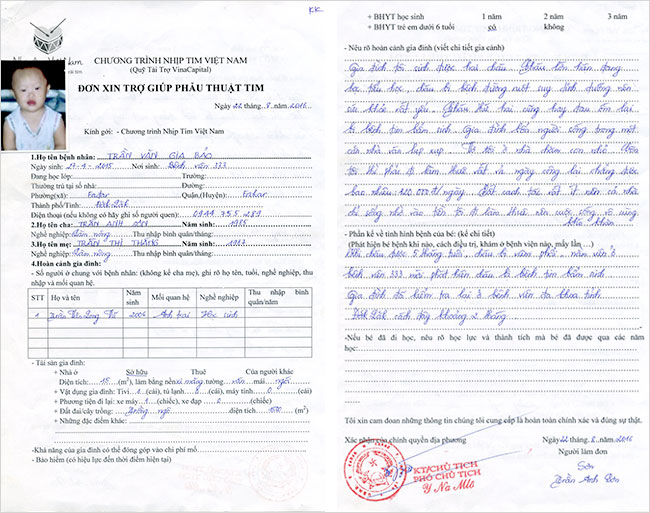 KK
Nhịp tim Việt Nam
CHƯƠNG TRÌNH NHỊP TIM VIỆT NAM
(Quỹ Tài Trợ VinaCapital)
ĐƠN XIN TRỢ GIÚP PHẪU THUẬT TIM
Ngày 22 tháng 8 năm 2016
Kính gởi: - Chương trình Nhịp Tim Việt Nam
1.Họ tên bệnh nhân: TRẦN VĂN GIA BẢO
Ngày sinh: 2015 Nơi sinh: Bệnh viện 333
Đang học lớp: Trường:
Thường trú tại số nhà: Đường:
Phường(xã): Eafar Quận,(Huyện): Eakar
Thành phố/Tỉnh: Đăk Lăk
Điện thoại (nếu không có hãy ghi số người quen): 0944 755 289
2.Họ tên cha: TRẦN ANH SƠN Năm sinh: 1985
Nghề nghiệp: Làm nông Thu nhập bình quân/tháng:
3.Họ tên mẹ: TRẦN THỊ THẮNG Năm sinh: 1987
Nghề nghiệp: Làm nông Thu nhập bình quân/tháng:
4.Hoàn cảnh gia đình:
- Số người ở chung với bệnh nhân: (không kể cha mẹ), ghi rõ họ tên, tuổi, nghề nghiệp, thu
nhập và mối quan hệ.
STT Họ và tên Năm sinh Mối quan hệ Nghề nghiệp Thu nhập bình quân/năm
1 Trần 2006 Anh trai Học sinh
- Tài sản gia đình:
+ Nhà ở Sở hữu Thuê Của người khác
Diện tích: 45 (m²), làm bằng nền xi măng tường ván mái ngói
+ Vật dụng gia đình: Tivi 1 (cái), tủ lạnh 0 (cái), máy tính 0 (cái)
+ Phương tiện đi lại: xe máy 1 (chiếc), xe đạp 0 (chiếc)
+ Đất đai/cây trồng: diện tích (m²)
+ Những đặc điểm khác:
-Khả năng của gia đình có thể đóng góp vào chi phí mổ
- Bảo hiểm (có hiệu lực đến thời điểm hiện tại)
+ BHYT học sinh 1 năm 2 năm 3 năm
+ BHYT trẻ em dưới 6 tuổi có không
- Nêu rõ hoàn cảnh gia đình (viết chi tiết gia cảnh)
Gia đình tôi sinh được hai cháu. Cháu lớn hiện đang
học tiểu học, cháu bị bệnh đường ruột suy dinh dưỡng nên
sức khỏe rất yếu. Cháu thứ hai cũng hay đau ốm lại
bị bệnh tim bẩm sinh. Gia đình bốn người sống trong một
căn nhà ván lụp xụp. Vợ tôi ở nhà chăm con nhỏ. Còn
tôi thì phải đi làm thuê vất vả ngày công lại chẳng được
bao nhiêu 120.000đ/ngày. Đất canh tác rất ít nên cả nhà
chỉ sống nhờ vào tiền tôi đi làm thuê nên cuộc sống vô cùng
khó khăn
- Phần kể về tình hình bệnh của bé: (kể chi tiết)
(Phát hiện bệnh khi nào, cách điều trị, khám ở bệnh viện nào, mấy lần…)
Khi cháu được 5 tháng tuổi, cháu bị viêm phổi, nằm viện ở
bệnh viện 333 mới phát hiện cháu bị bệnh tim bẩm sinh
Gia đình đã kiểm tra lại ở bệnh viện đa khoa tỉnh
Đăk Lăk cách đây khoảng 2 tháng.
-Nếu bé đã đi học, nêu rõ học lực và thành tích mà bé đã được qua các năm
học:
Tôi xin cam đoan những thông tin chúng tôi cung cấp là hoàn toàn chính xác và đúng sự thật.
Xác nhận của chính quyền địa phương Ngày 22 tháng 8 năm 2016
Người làm đơn
KT/CHỦ TỊCH
PHÓ CHỦ TỊCH
Y Na Mlô
Sơn
Trần Anh Sơn